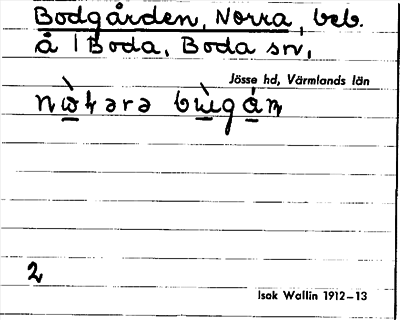 Bodgården, Norra, beb.
å 1 Boda, Boda sn,
Jösse hd, Värmlands län
2
Isak Wallin 1912–13